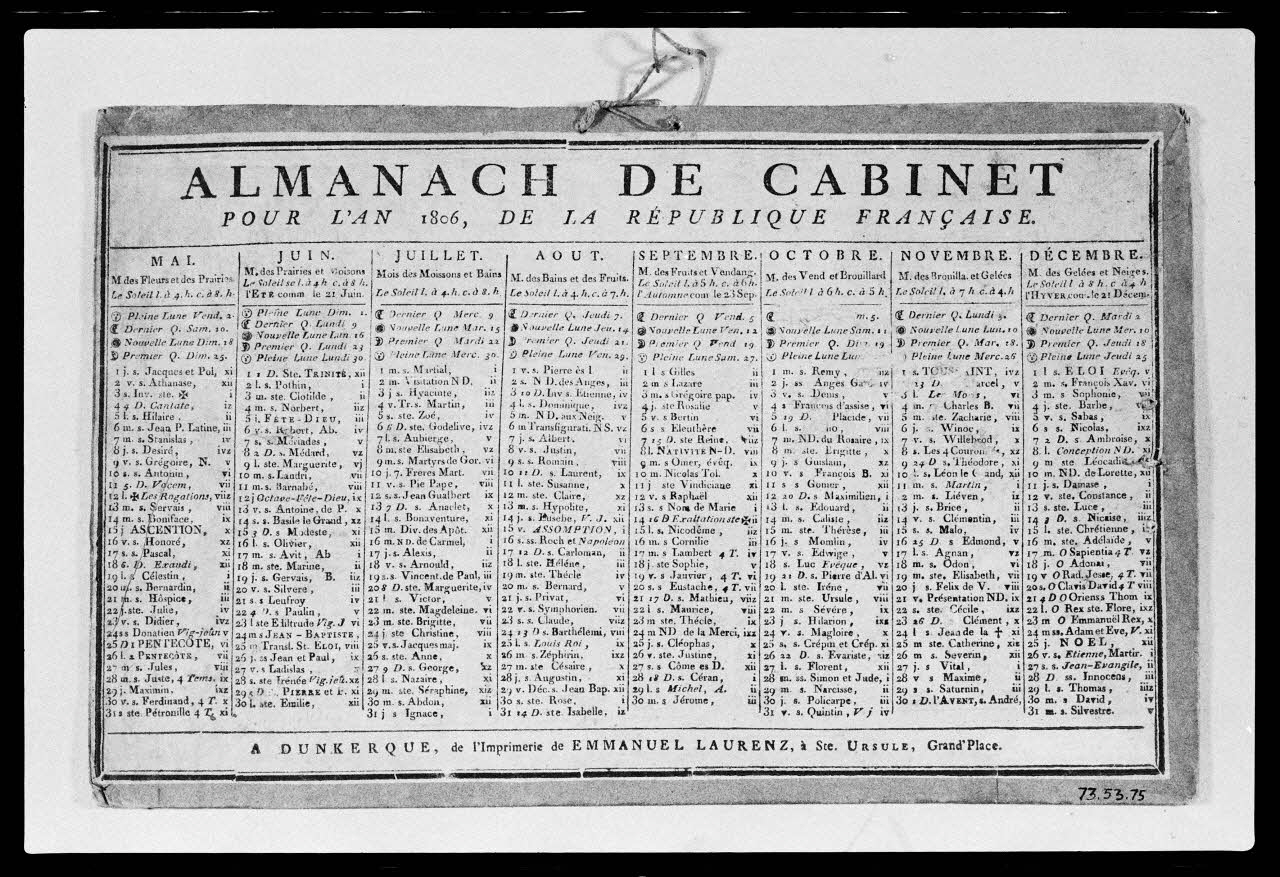 ALMANACH DE CABINET
POUR L'AN 1806, DE LA RÉPUBLIQUE FRANÇAISE.
MAI.
M. des Fleurs et des Prairies.
Le Soleil l. à 4. h. c. à 8. h.
Pleine Lune Vend. 2.
Dernier Q. Sam. 10.
Nouvelle Lune Dim. 18
Premier Q. Dim. 25.
1 j. s. Jacques et Pol, xi
2 v. s. Athanase, xii
3 s. Inv. ste. ✠ i
4 4 D. Cantate, iz
5 l. s. Hilaire, ii
6 m. s. Jean P. Latine, iii
7 m. s. Stanislas, iv
8 j. s. Desiré, ivz
9 v. s. Grégoire, N. v
10 s. s. Antonin, vi
11 5. D. Vocem, vii
12 l. ✠ Les Rogations, viiz
13 m. s. Servais, viii
14 m. s. Boniface, ix
15 j ASCENSION, x
16 v. s. Honoré, xz
17 s. s. Pascal, xi
18 6. D. Exaudi, xii
19 l. s Célestin, i
20 m. s. Bernardin, ii
21 m. s. Hospice, iii
22 j. ste. Julie, iv
23 v. s. Didier, ivz
24 s s Donatien Vig-jeûn v
25 D l PENTECÔTE, vi
26 l. 2 PENTECÔTE, vii
27 m s. Jules, viii
28 m. s. Juste, 4 Tems. ix
29 j. Maximin, ixz
30 v. s. Ferdinand, 4 T. x
31 s ste. Pétronille 4 T. xi
JUIN.
M. des Prairies et Moisons
Le Soleil se l. à 4 h c. à 8 h.
l'ÉTÉ comm le 21 Juin.
Pleine Lune Dim. 1.
Dernier Q. Lundi 9
Nouvelle Lune Lun. 16
Premier Q. Lundi 23
Pleine Lune Lundi 30.
1 1 D. Ste. TRINITÉ, xii
2 l. s. Pothin, i
3 m. ste. Clotilde, ii
4 m. s. Norbert, iiz
5 j. FÊTE-DIEU, iii
6 v. s. Robert, Ab. iv
7 s. s. Mériades, v
8 2 D. s. Médard, vz
9 l. ste. Marguerite, vj
10 m. s. Landri, vii
11 m. s. Barnabé, viii
12 j Octave-Fête-Dieu, ix
13 v. s. Antoine, de P. x
14 s. s. Basile le Grand, xz
15 3 D. s Modeste, xi
16 l. s. Olivier, xii
17 m. s. Avit, Ab i
18 m. ste. Marine, ii
19 j. s. Gervais, B. iiz
20 v. s. Silvere, iii
21 s. s Leufroy iv
22 4 D. s Paulin, v
23 l ste Ediltrude Vig. J vi
24 m s JEAN-BAPTISTE,
25 m Transl. St. ELOI, viii
26 j. ss Jean et Paul, ix
27 v. s Ladislas, x
28 s. ste Irénée Vig. jeû. xz
29 5 D. s PIERRE et P. xi
30 l. ste. Emilie, xii
JUILLET.
Mois des Moissons et Bains
Le Soleil l. à 4. h. c. à 8. h.
Dernier Q. Merc. 9
Nouvelle Lune Mar. 15
Premier Q. Mardi 22
Pleine Lune Merc. 30.
1 m. s. Martial, i
2 m. Visitation N D, ii
3 j s. Hyacinte, iiz
4 v. Tr. s. Martin, iii
5 s. ste. Zoé, iv
6 6 D. ste. Godelive, ivz
7 l. s. Aubierge, v
8 m. ste Elisabeth, vz
9 m. s. Martyrs de Gor. vi
10 j. 7. Freres Mart. vii
11 v. s. Pie Pape, viii
12 s. s. Jean Gualbert ix
13 7 D. s. Anaclet, x
14 l. s. Bonaventure, xi
15 m. Div. des Apôt. xii
16 m. ND. de Carmel, i
17 j. s. Alexis, ii
18 v. s. Arnould, iiz
19 s. s. Vincent. de Paul, iii
20 8 D. ste. Marguerite, iv
21 l. s Victor, v
22 m. ste. Magdeleine. vi
23 m. ste. Brigitte, vii
24 j. ste Christine, viii
25 v. s. Jacques maj. ix
26 s. ste. Anne, x
27 9 D. s. George, xz
28 l. s. Nazaire, xi
29 m. ste. Séraphine, xiz
30 m. s. Abdon, xii
31 j s Ignace, i
AOUT.
M. des Bains et des Fruits.
Le Soleil l. à 4. h. c. à 7. h.
Dernier Q. Jeudi 7.
Nouvelle Lune Jeu. 14
Premier Q. Jeudi 21.
Pleine Lune Ven. 29.
1 v. s. Pierre ès l ii
2 s. N D. des Anges, iii
3 10 D. Inv s. Etienne, iv
4 l. s. Dominique, ivz
5 m. ND. aux Neig. v
6 m Transfigurati. N S. vz
7 j. s. Albert, vi
8 v. s. Justin, vii
9 s. s. Romain, viii
10 11 D. s. Laurent, ix
11 l. ste. Susanne, x
12 m. ste. Claire, xz
13 m. s. Hypolite, xi
14 j. s. Eusebe, V. J. xii
15 v. ASSOMPTION, i
16 s. ss. Roch et Napoléon
17 12 D. s. Carloman, ii
18 l. ste. Hélène, iii
19 m. ste. Thécle iv
20 m. s. Bernard, v
21 j. s. Privat, vi
22 v. s. Symphorien. vii
23 s. s. Claude, viiz
24 13 D. s. Barthélemi, viii
25 l. s. Louis Roi, ix
26 m. s. Zéphirin, ixz
27 m. ste Césaire, x
28 j. s. Augustin, xi
29 v. Déc. s. Jean Bap. xii
30 s. ste. Rose, i
31 14 D. ste. Isabelle, iz
SEPTEMBRE.
M. des Fruits et Vendang.
Le Soleil l. à 5 h. c. à 6 h.
l'Automne com le 23 Sep.
Dernier Q. Vend. 5
Nouvelle Lune Ven. 12
Premier Q Vend 19
Pleine Lune Sam. 27.
1 l s Gilles ii
2 m s Lazare iii
3 m s. Grégoire pap. iv
4 j. ste Rosalie v
5 v s. Bertin vi
6 s s Eleuthère vii
7 15 D. ste Reine, viiz
8 l. NATIVITÉ N-D. viii
9 m s Omer, évêq. ix
10 m. Nicolas Tol. x
11 j ste Vindiciane xi
12 v. s Raphaël xii
13 s. s Nom de Marie i
14 16 D Exaltation ste ✠ ii
15 l. s. Nicodème, iiz
16 m s Cornilie iii
17 m. s Lambert 4 T. iv
18 j. ste Sophie, v
19 v. s Janvier, 4 T. vi
20 s. s Eustache, 4 T. vii
21 17 D. s. Mathieu, viiz
22 l s. Maurice, viii
23 m ste. Thécle, ix
24 m ND. de la Merci, ixz
25 j. s. Cléophas, x
26 v. ste. Justine, xi
27 s. s Côme es D. xii
28 18 D. s. Céran, i
29 l. s Michel, A. ii
30 m. s Jérome, iii
OCTOBRE.
M. des Vend et Brouillard
Le Soleil l à 6 h. c. à 5 h.
m. 5.
Nouvelle Lune Sam. 11
Premier Q Dim 19
Pleine Lune
1 m. s. Remy, iiz
2 j. ss Anges iv
3 v. s. Denis, v
4 s François d'assise, vi
5 19 D. s Placide, vii
6 l. s. viii
7 m. ND. du Rosaire, ix
8 m. ste. Brigitte, x
9 j. s Guislain, xz
10 v. s François B. xi
11 s s Gomer, xii
12 20 D. s Maximilien, i
13 l. s. Edouard, ii
14 m. s. Caliste, iiz
15 m. ste. Thérèse, iii
16 j. s Momlin, iv
17 v. s. Edwige, v
18 s. Luc Evêque, vz
19 21 D. s. Pierre d'Al. vi
20 l. ste. Irénée, vii
21 m. ste. Ursule, viii
22 m. s Sévére, ix
23 j. s Hilarion, ixz
24 v. s. Magloire, x
25 s, s. Crépin et Crép. xi
26 22 D. s Evariste, xiz
27 l. s. Florent, xii
28 m. ss. Simon et Jude, i
29 m. s Narcisse, ii
30 j. s. Policarpe, iii
31 v. s. Quintin, V j iv
NOVEMBRE.
M. des Brouilla. et Gelées
Le Soleil l. à 7 h c. à 4. h
Dernier Q. Lundi 3.
Nouvelle Lune Lun. 10
Premier Q. Mar. 18.
Pleine Lune Merc. 26
1 s. ivz
23 D. v
3 l. Les Morts, vi
4 m. s Charles B. vii
5 m. ste. Zacharie, viii
6 j. s. Winoc, ix
7 v. s. Willebrod, x
8 s. Les 4 Couronnés, xz
9 24 D s. Théodore, xi
10 l. s. Léon le Grand, xii
11 m. s. Martin, i
12 m. s. Liéven, ii
13 j. s. Brice, ii
14 v. s. Clémentin, iii
15 s. s. Malo, iv
16 25 D s Edmond, v
17 l. s Agnan, vz
18 m. s. Odon, vi
19 m. ste. Elisabeth, vii
20 j. s Felix de V. viii
21 v. Présentation ND. ix
22 s. ste. Cécile, ixz
23 26 D. s Clément, x
24 l s Jean de la ✝ xi
25 m ste. Catherine, xiz
26 m s Severin, xii
27 j. s Vital, i
28 v s Maxime, ii
29 s s. Saturnin, iii
30 1 D. l'AVENT, s. André,
DÉCEMBRE.
M. des Gelées et Neiges.
Le Soleil à 8 h c à 4 h
l'HYVER com. le 21 Décem.
Dernier Q. Mardi 2
Nouvelle Lune Mer. 10
Premier Q. Jeudi 18
Pleine Lune Jeudi 25
1 l s. ELOI Evêq. v
2 m. s. François Xav. vi
3 m s Sophonie, vii
4 j. ste. Barbe,
5 v. s. Sabas, ix
6 s s. Nicolas, ixz
7 2 D. s Ambroise, x
8 l. Conception ND. xi
9 m ste Léocadie
10 m. ND. de Lorette, xii
11 j. s. Damase, i
12 v. ste. Constance, ii
13 s. ste. Luce, iii
14 3 D. s Nicaise, iiiz
15 l. ste. Chrétienne, iv
16 m. ste. Adélaïde, v
17 m. O Sapientia 4 T. vz
18 j. O Adonai, vii
19 v O Rad. Jesse, 4 T. vii
20 s. O Clavis David 4 T viii
21 4 D O Oriens s Thom ix
22 l. O Rex ste. Flore, ixz
23 m O Emmanuël Rex, x
24 m ss. Adam et Eve, V. xi
25 j. NOËL, xii
26 v. s. Etienne, Martir. i
27 s. s. Jean-Evangile, ii
28 D ss. Innocens, iii
29 l. s. Thomas, iiiz
30 m s David, iv
31 m. s. Silvestre. v
A DUNKERQUE, de l'Imprimerie de EMMANUEL LAURENZ, à Ste. URSULE, Grand'Place.
73.53.75